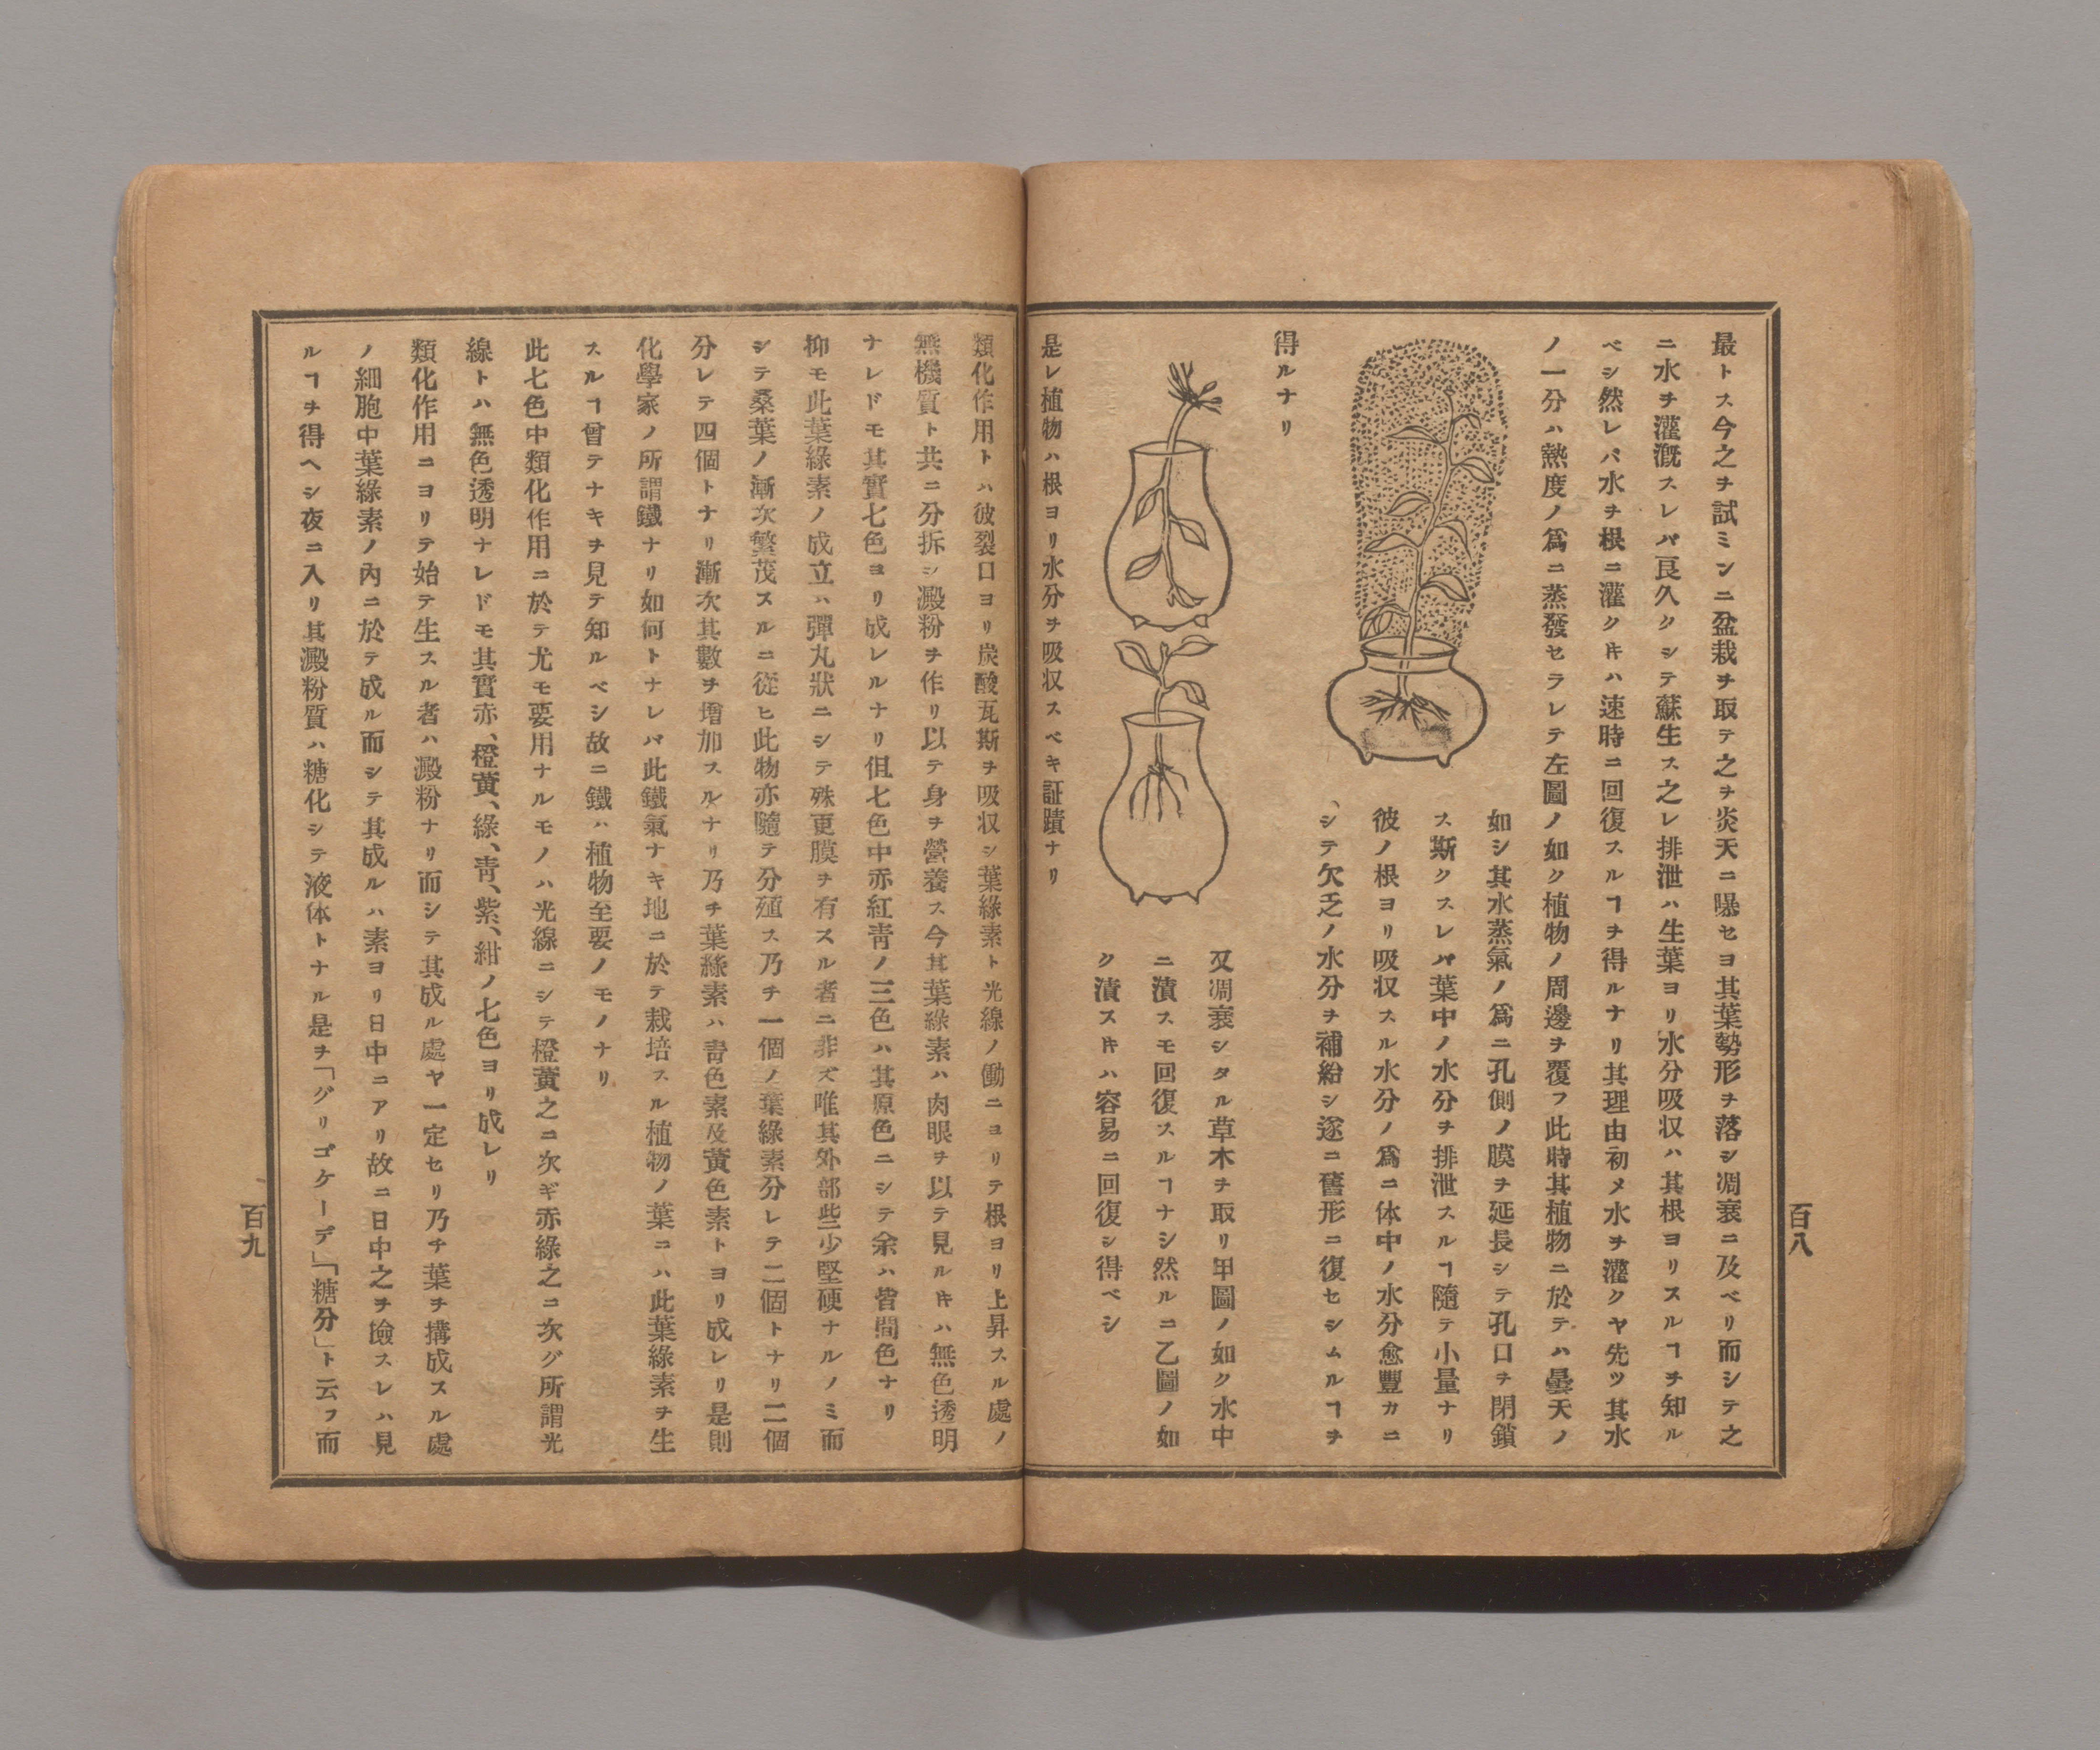 最トス今之ヲ試ミンニ盆栽ヲ取テ之ヲ炎天ニ曝セヨ其葉勢形ヲ落シ凋衰ニ及ベリ而シテ之
ニ水ヲ灌漑スレバ良久クシテ蘇生ス之レ排泄ハ生葉ヨリ水分吸収ハ其根ヨリスルヿヲ知ル
ベシ然レバ水ヲ根ニ灌クキハ速時ニ回復スルヿヲ得ルナリ其理由初メ水ヲ灌クヤ先ツ其水
ノ一分ハ熱度ノ爲ニ蒸發セラレテ左圖ノ如ク植物ノ周邊ヲ覆フ此時其植物ニ於テハ曇天ノ
如シ其水蒸氣ノ爲ニ孔側ノ膜ヲ延長シテ孔口ヲ閉鎖
ス斯クスレバ葉中ノ水分ヲ排泄スルヿ隨テ小量ナリ
彼ノ根ヨリ吸収スル水分ノ爲ニ体中ノ水分愈豐カニ
シテ欠乏ノ水分ヲ補給シ遂ニ舊形ニ復セシムルヿヲ
得ルナリ
又凋衰シタル草木ヲ取リ甲圖ノ如ク水中
ニ漬スモ回復スルヿナシ然ルニ乙圖ノ如
ク漬スキハ容易ニ回復シ得ベシ
是レ植物ハ根ヨリ水分ヲ吸収スベキ証蹟ナリ
百八
類化作用トハ彼裂口ヨリ炭酸瓦斯ヲ吸収シ葉綠素ト光線ノ働ニヨリテ根ヨリ上昇スル處ノ
無機質ト共ニ分拆シ澱粉ヲ作リ以テ身ヲ營養ス今其葉綠素ハ肉眼ヲ以テ見ルキハ無色透明
ナレドモ其實七色ヨリ成レルナリ但七色中赤紅靑ノ三色ハ其原色ニシテ余ハ皆間色ナリ
抑モ此葉綠素ノ成立ハ彈丸狀ニシテ殊更膜ヲ有スル者ニ非ズ唯其外部些少堅硬ナルノミ而
シテ桑葉ノ漸次繁茂スルニ從ヒ此物亦隨テ分殖ス乃チ一個ノ葉綠素分レテ二個トナリ二個
分レテ四個トナリ漸次其數ヲ增加スルナリ乃チ葉綠素ハ靑色素及黃色素トヨリ成レリ是則
化學家ノ所謂鐵ナリ如何トナレバ此鐵氣ナキ地ニ於テ栽培スル植物ノ葉ニハ此葉綠素ヲ生
スルヿ曾テナキヲ見テ知ルベシ故ニ鐵ハ植物至要ノモノナリ
此七色中類化作用ニ於テ尤モ要用ナルモノハ光線ニシテ橙黃之ニ次ギ赤綠之ニ次グ所謂光
線トハ無色透明ナレドモ其實赤、橙黃、綠、靑、紫、紺ノ七色ヨリ成レリ
類化作用ニヨリテ始テ生スル者ハ澱粉ナリ而シテ其成ル處ヤ一定セリ乃チ葉ヲ搆成スル處
ノ細胞中葉綠素ノ內ニ於テ成ル而シテ其成ルハ素ヨリ日中ニアリ故ニ日中之ヲ撿スレハ見
ルヿヲ得ヘシ夜ニ入リ其澱粉質ハ糖化シテ液体トナル是ヲ「グリゴケーデ」「糖分」ト云フ而
百九